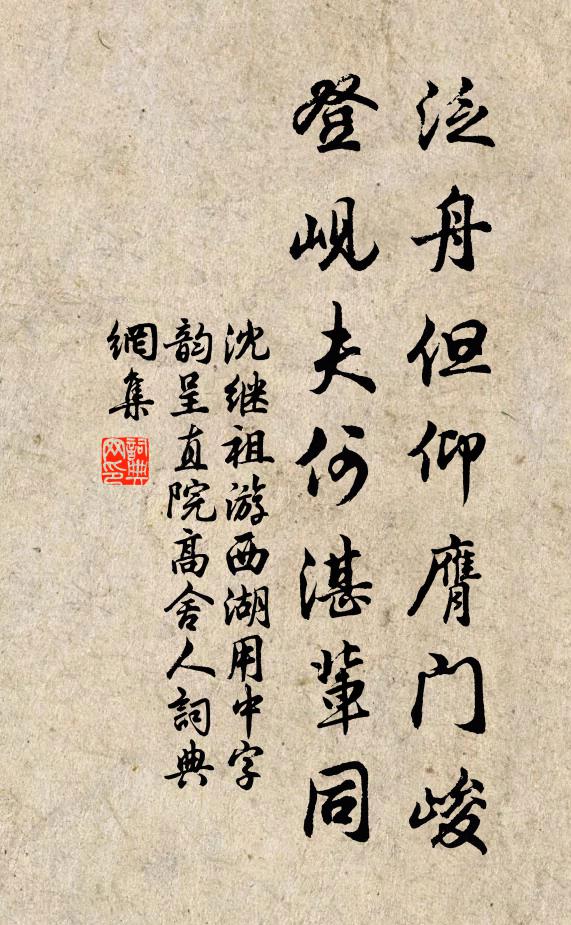 泛舟但仰膺门峻
登岘夫何湛辈同
沈继祖游西湖用中字
韵呈直院高舍人詞典
網集
詞典网印